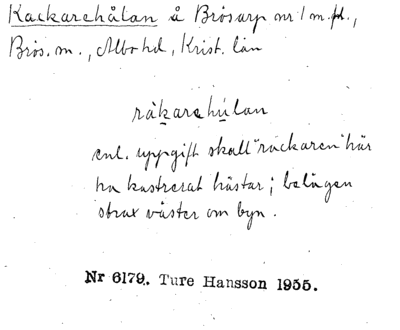 Rackarehålan å Brösarp nr 1 m.fl.,
Brös. sn., Albo hd, Krist. län
räkarehúlan
enl. uppgift skall "rackaren" här
ha kastrerat hästar; belägen
strax väster om byn.
Nr 6179. Ture Hansson 1955.